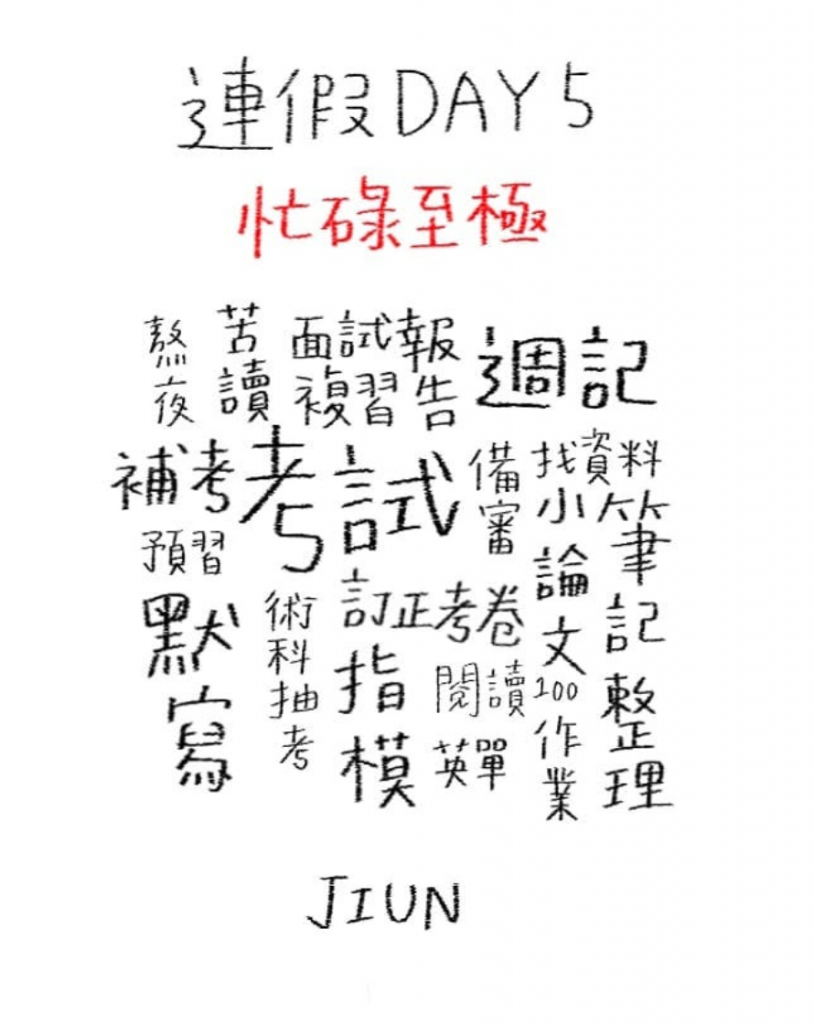 連假DAY5
忙碌至極
熬夜
苦讀
面試複習
報告
週記
補考
考試
備審
找資料
預習
小論文
筆記整理
默寫
術科抽考
訂正考卷
指模
閱讀
100作業
英單
JIUN